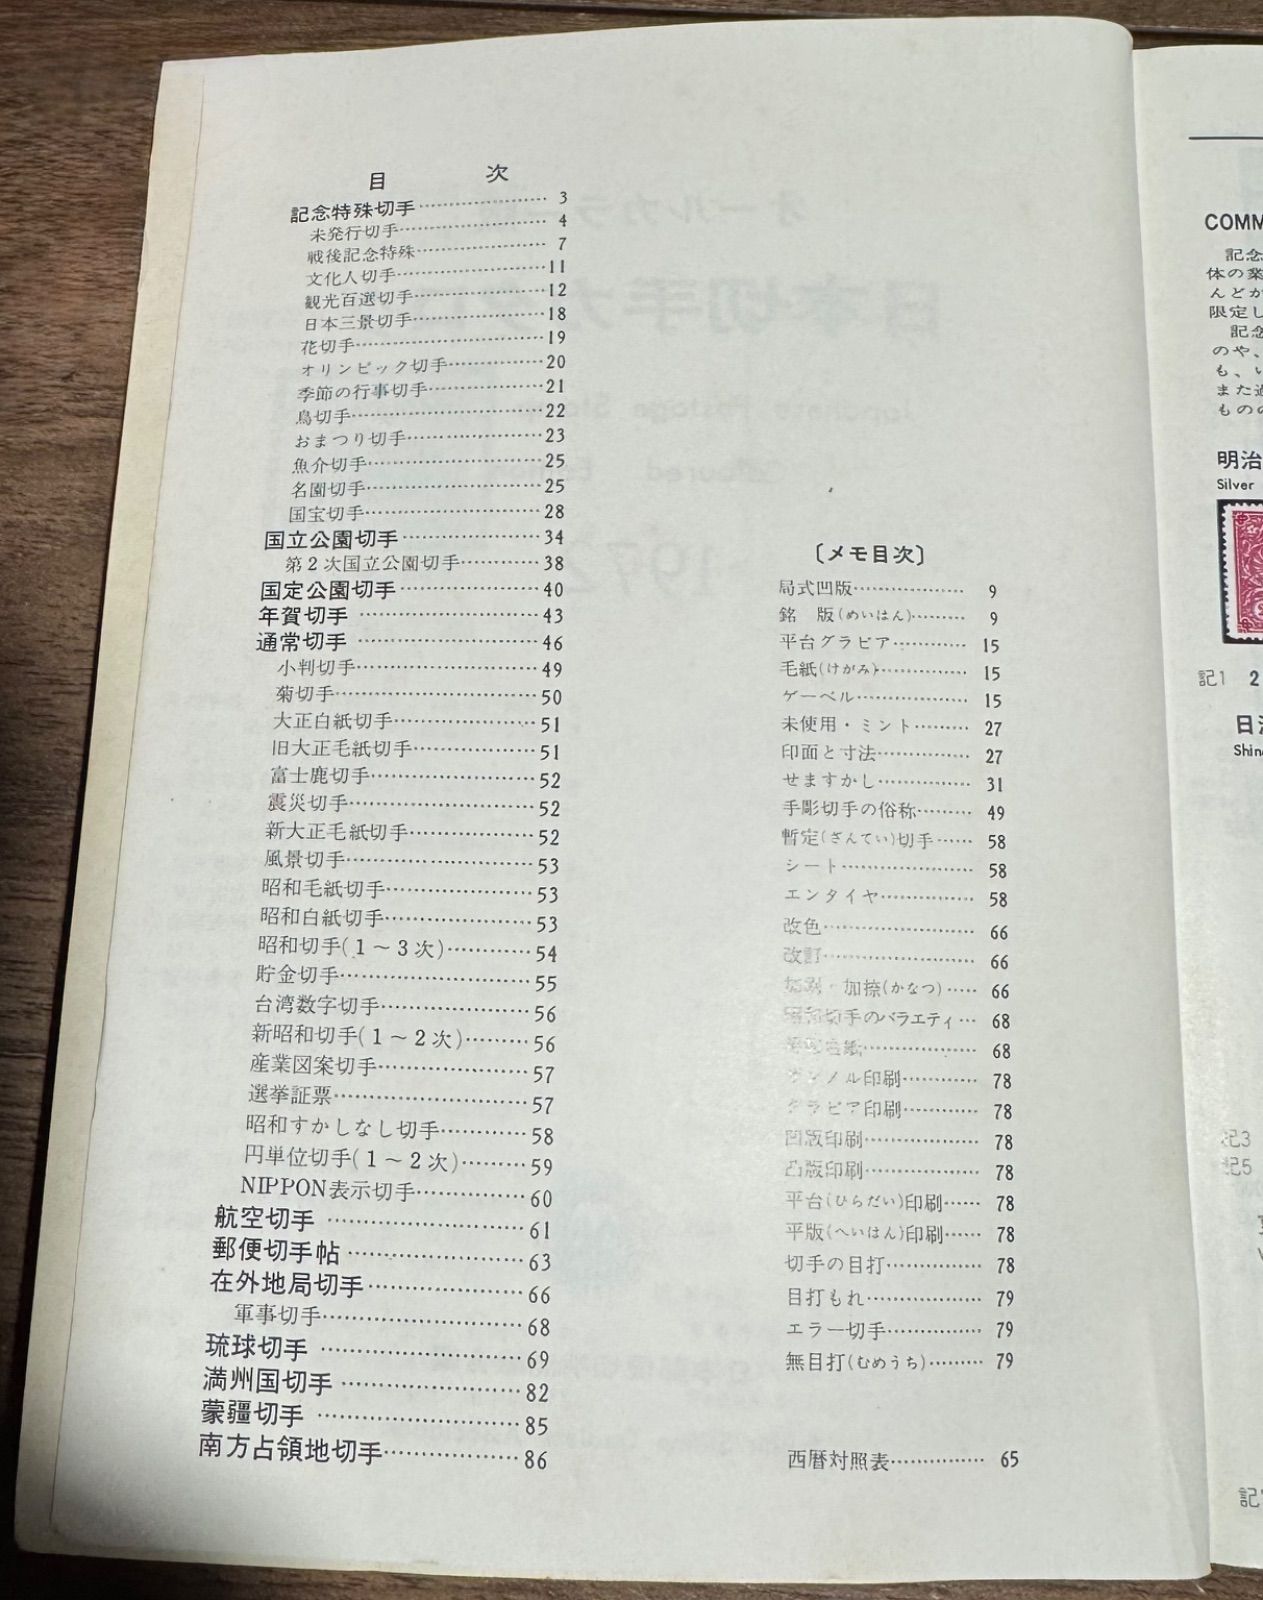 目次
記念特殊切手 3
未発行切手 4
戦後記念特殊 7
文化人切手 11
観光百選切手 12
日本三景切手 18
花切手 19
オリンピック切手 20
季節の行事切手 21
鳥切手 22
おまつり切手 23
魚介切手 25
名園切手 25
国宝切手 28
国立公園切手 34
第2次国立公園切手 38
国定公園切手 40
年賀切手 43
通常切手 46
小判切手 49
菊切手 50
大正白紙切手 51
旧大正毛紙切手 51
富士鹿切手 52
震災切手 52
新大正毛紙切手 52
風景切手 53
昭和毛紙切手 53
昭和白紙切手 53
昭和切手(1～3次) 54
貯金切手 55
台湾数字切手 56
新昭和切手(1～2次) 56
産業図案切手 57
選挙証票 57
昭和すかしなし切手 58
円単位切手(1～2次) 59
NIPPON表示切手 60
航空切手 61
郵便切手帖 63
在外地局切手 66
軍事切手 68
琉球切手 69
満州国切手 82
蒙疆切手 85
南方占領地切手 86
〔メモ目次〕
局式凹版 9
銘 版(めいはん) 9
平台グラビア 15
毛紙(けがみ) 15
ゲーベル 15
未使用・ミント 27
印面と寸法 27
せますかし 31
手彫切手の俗称 49
暫定(ざんてい)切手 58
シート 58
エンタイヤ 58
改色 66
改訂 66
加捺(かなつ) 66
昭和切手のバラエティ 68
68
印刷 78
グラビア印刷 78
凹版印刷 78
凸版印刷 78
平台(ひらだい)印刷 78
平版(へいはん)印刷 78
切手の目打 78
目打もれ 79
エラー切手 79
無目打(むめうち) 79
西暦対照表 65
COMM
記念
体の業
んどか
限定し
記念
のや、
も、い
また過
ものの
明治
Silver
記1 2
Shin
記3
記5